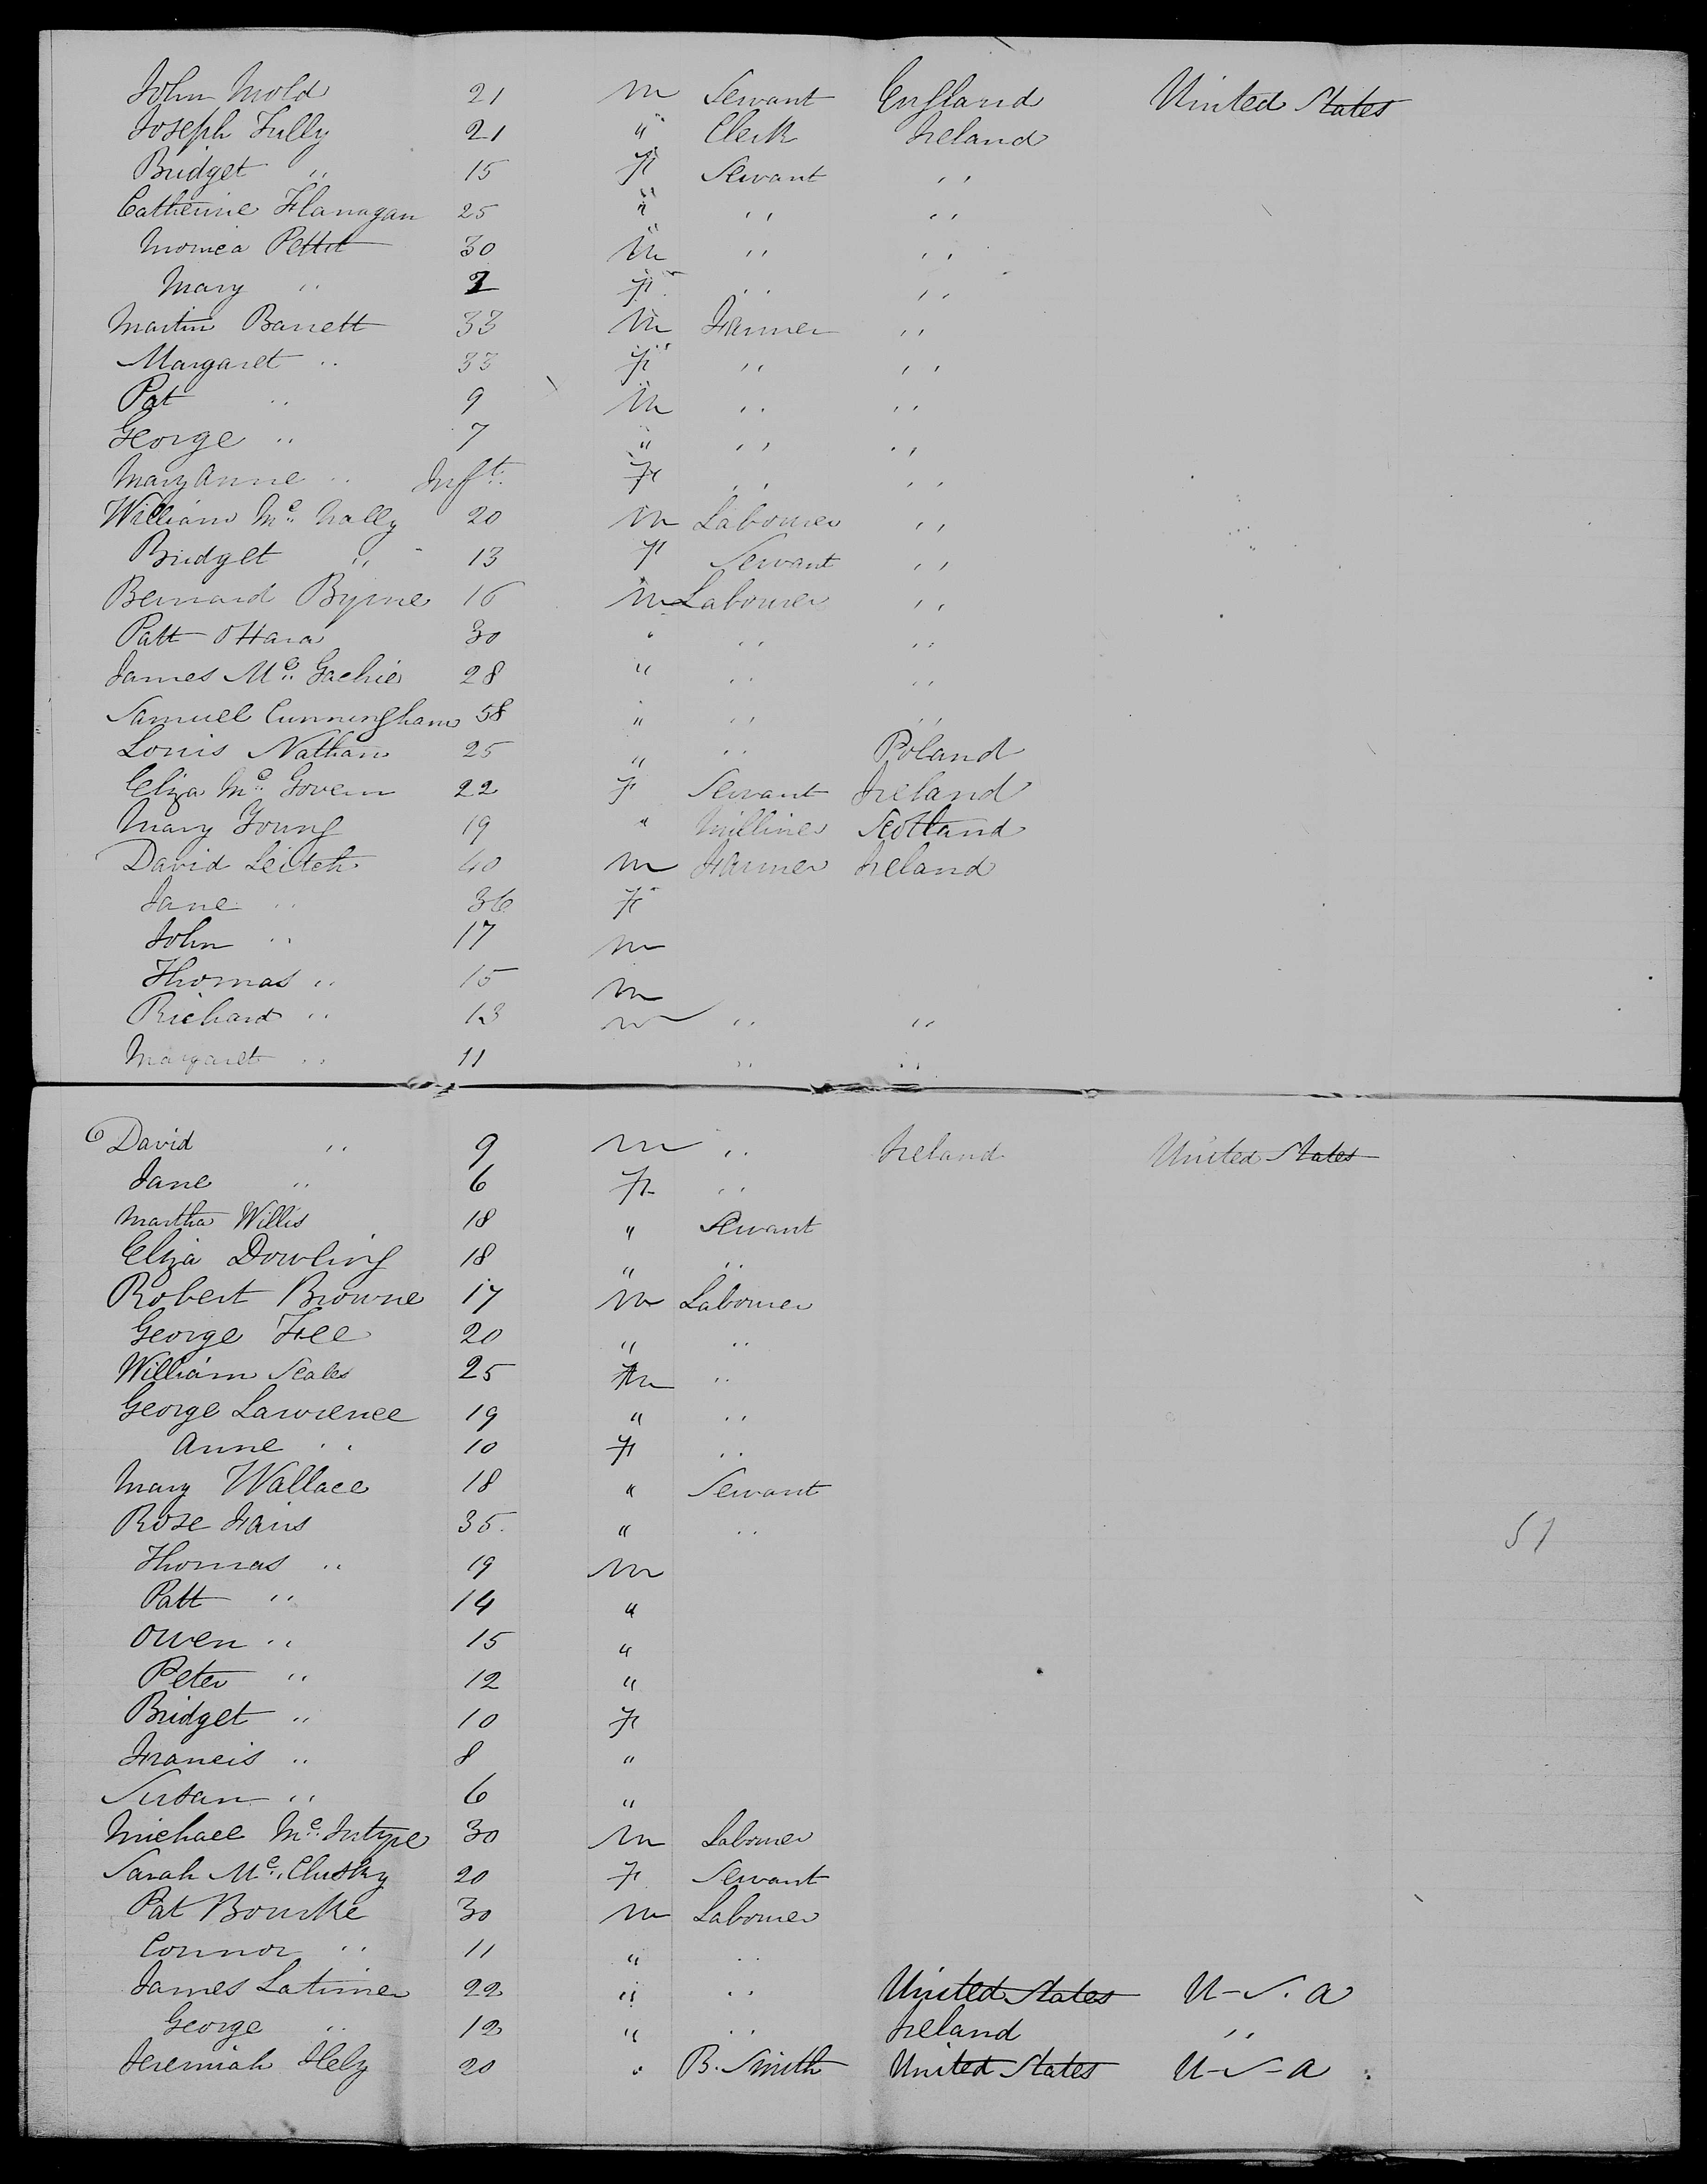 John Mold 21 m Servant England United States
Joseph Tully 21 " Clerk Ireland
Bridget " 15 F Servant "
Catherine Flanagan 25 " " "
Monica Pettit 30 m " "
Mary " 2 F " "
Martin Barrett 33 m Farmer "
Margaret " 33 F " "
Pat " 9 m " "
George " 7 " " "
Mary Anne " Inft. F " "
William Mc. Nally 20 m Labourer "
Bridget " 13 F Servant "
Bernard Byrne 16 m Labourer "
Patt O Hara 30 " " "
James Mc. Gachie 28 " " "
Samuel Cunningham 58 " " "
Louis Nathan 25 " " Poland
Eliza Mc. Govern 22 F Servant Ireland
Mary Young 19 " Milliner Scotland
David Leitch 40 m Farmer Ireland
Jane " 36 F
John " 17 m
Thomas " 15 m
Richard " 13 m " "
Margaret " 11 " "
David " 9 m " Ireland United States
Jane " 6 F "
Martha Willis 18 " Servant
Eliza Dowling 18 " "
Robert Browne 17 m Labourer
George Fee 20 " "
William Scales 25 m "
George Lawrence 19 " "
Anne " 10 F "
Mary Wallace 18 " Servant
Rose Faris 35. " "
51
Thomas " 19 m
Patt " 14 "
Owen " 15 "
Peter " 12 "
Bridget " 10 F
Francis " 8 "
Susan " 6 "
Michael Mc. Intyre 30 m Labourer
Sarah Mc. Clusky 20 F Servant
Pat Bourke 30 m Labourer
Connor " 11 " "
James Latimer 22 " " United States U-S.A
George " 12 " " Ireland "
Jeremiah Hely 20 " B. Smith United States U-S-A